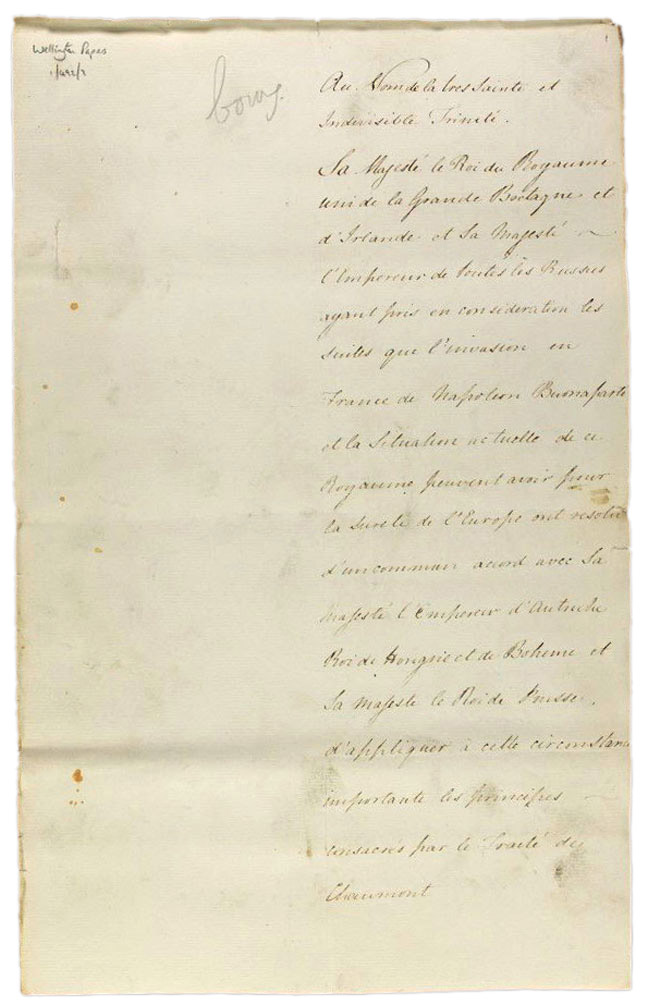 Wellington Papers
1/492/7
Au Nom de la tres Sainte et
Indivisible Trinité.
Sa Majesté le Roi du Royaume
uni de la Grande Bretagne et
d'Irlande et Sa Majesté
l'Empereur de toutes les Russies
ayant pris en consideration les
suites que l'invasion en
France de Napoleon Buonaparte
et la Situation actuelle de ce
Royaume peuvent avoir pour
la Sureté de l'Europe ont resolu
d'un commun accord avec Sa
Majesté l'Empereur d'Autriche
Roi de Hongrie et de Boheme et
Sa Majesté le Roi de Prusse,
d'appliquer à cette circonstance
importante les principes
consacrés par le Traité de
Chaumont